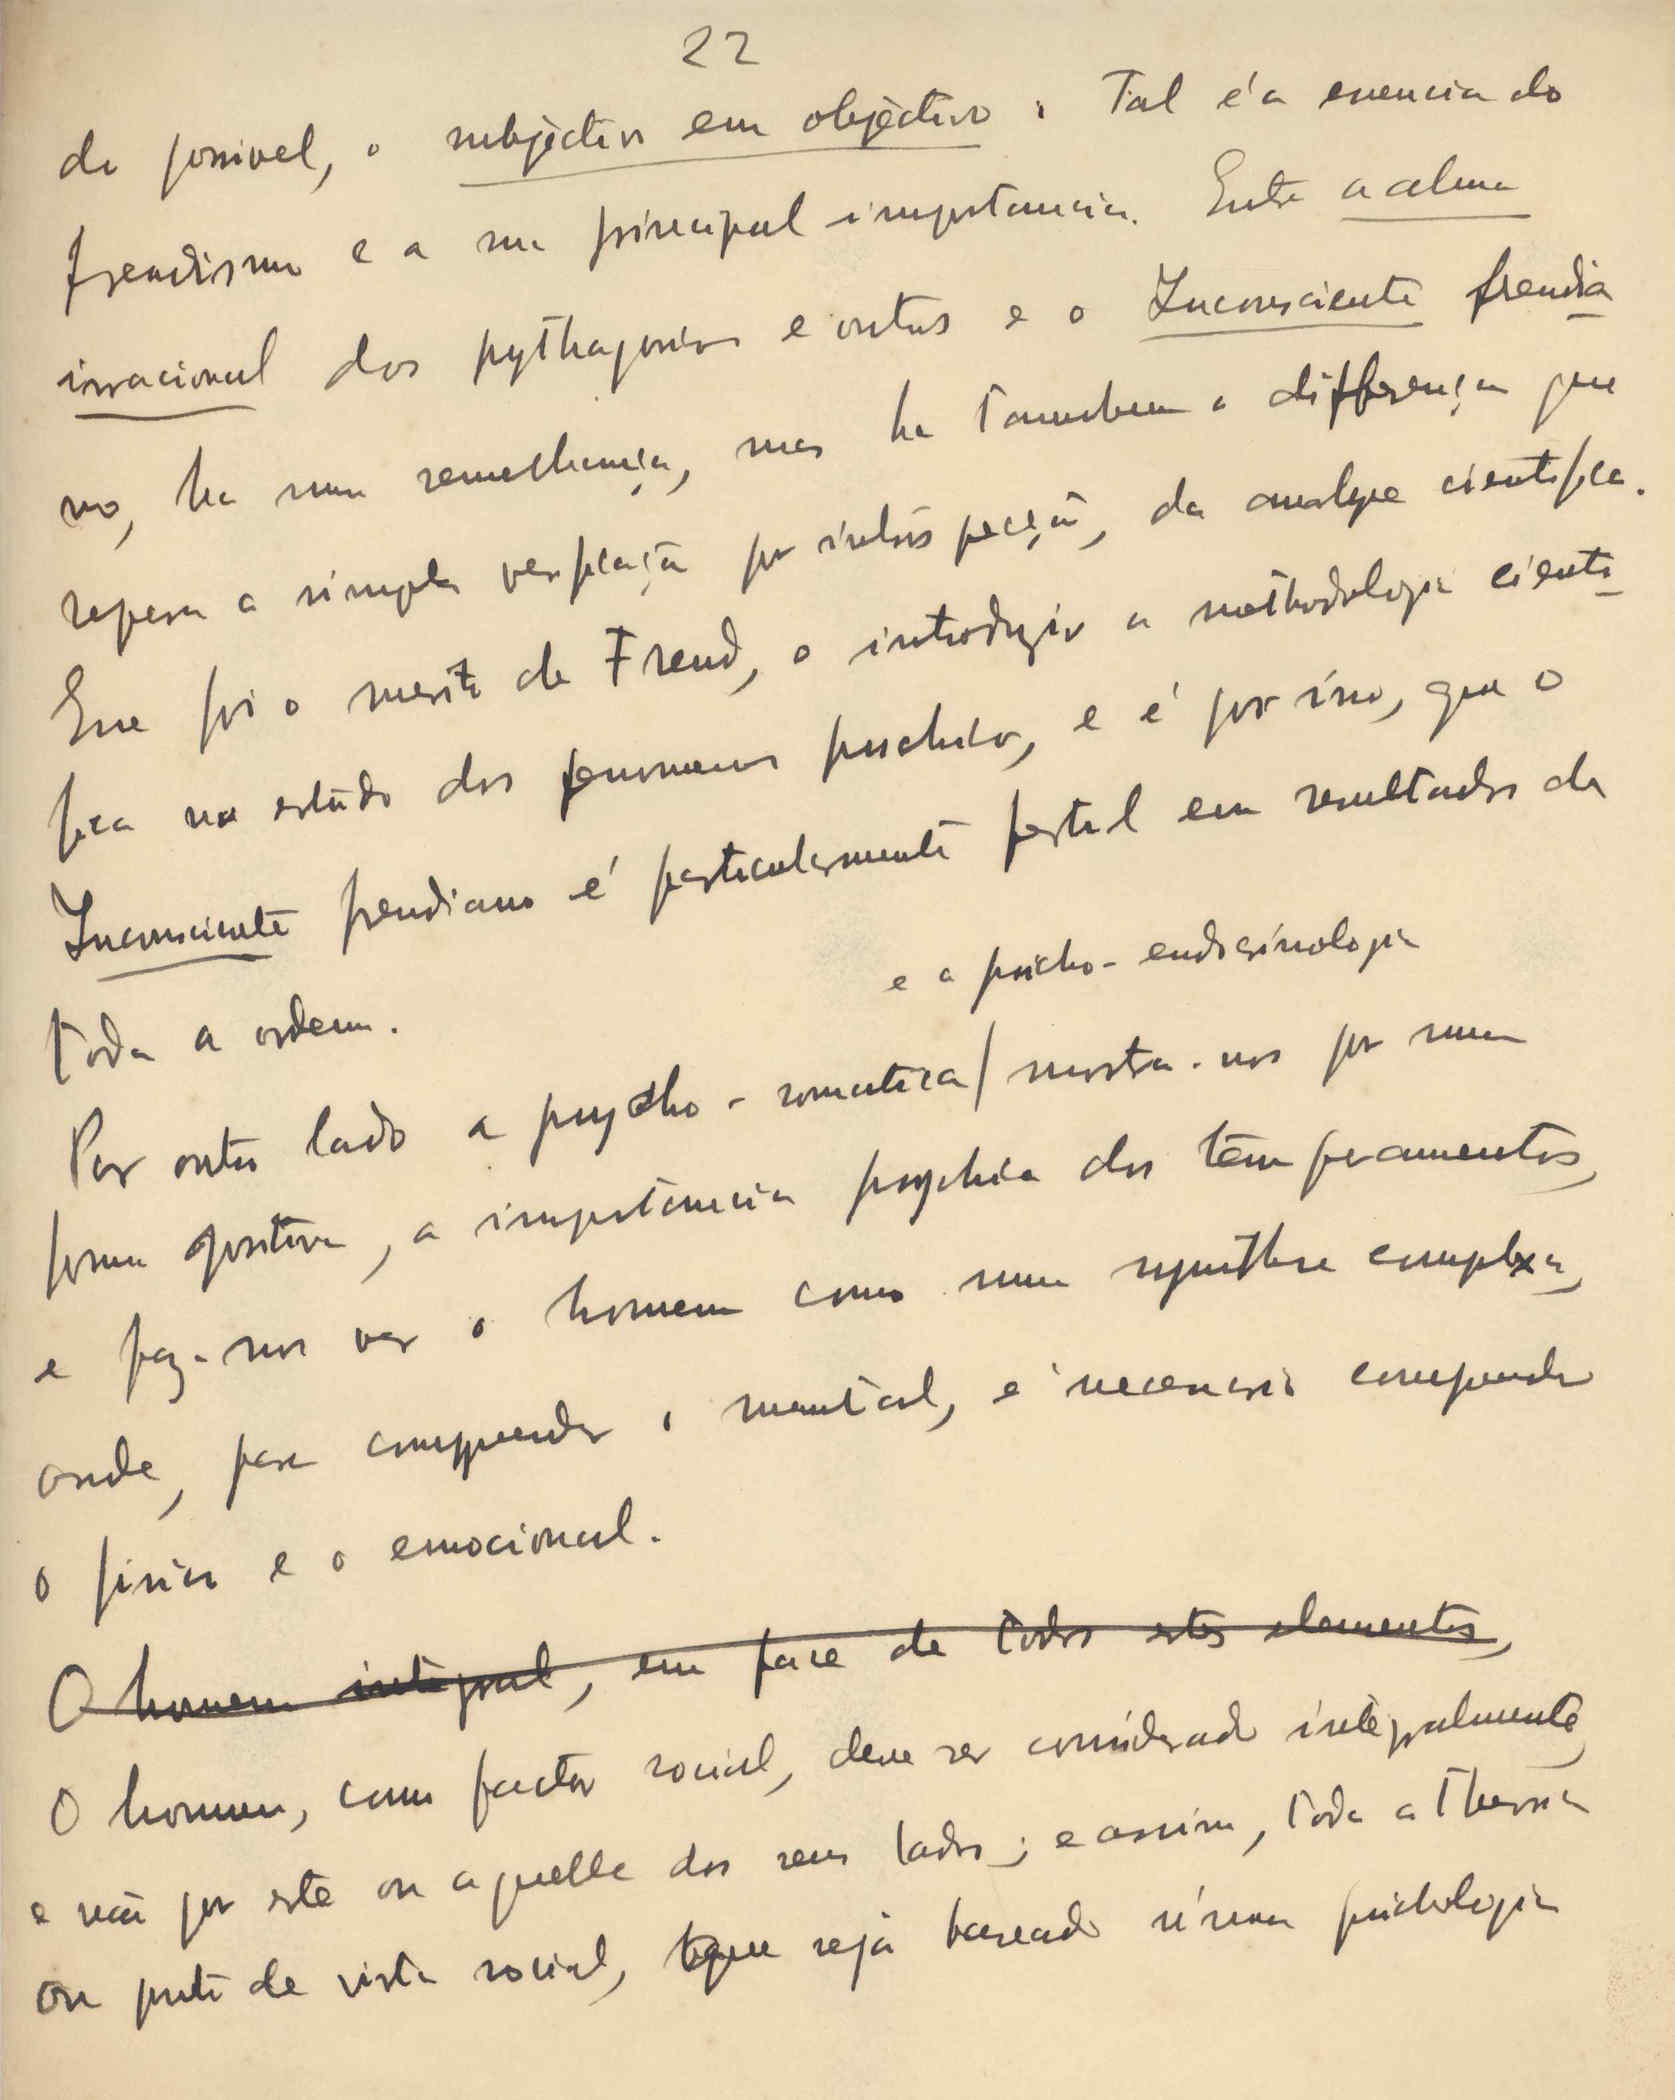 22
do possivel, o subjectivo em objectivo. Tal é a essencia do
freudismo e a sua principal importancia. Entre a alma
irracional dos pythagoricos e outros e o Inconsciente freudia-
no, ha uma semelhança, mas ha tambem a differença que
separa a simples verificação por introspecção, da analyse cientifica.
Esse foi o merito de Freud, o introduzir a methodologia cienti-
fica no estudo dos fenomenos psichicos, e é por isso, que o
Inconsciente freudiano é particularmente fertil em resultados de
toda a ordem.
e a psicho-endocrinologia
Por outro lado a psycho-somatica / mostra-nos por uma
forma positiva, a importancia psychica dos temperamentos,
e faz-nos ver o homem como uma synthese complexa,
onde, para comprender o mental, é necessario comprender
o fisico e o emocional.
O homem integral, em face de todos estes elementos,
O homem, como factor social, deve ser considerado integralmente,
e não por este ou aquelle dos seus lados; e assim, toda a theoria
ou ponto de vista social, que seja baseado só numa psichologia